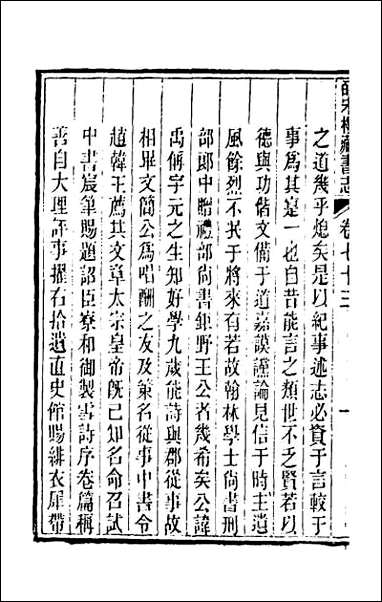 皕宋樓藏書志 卷七十三 一
之道幾乎熄矣是以紀事述志必資于言較于
事為其寔一也自昔能言之類世不乏賢若以
德與功偕文備于道嘉謨讜論見信于時主遺
風餘烈不民于將來有若故翰林學士尚書刑
部郎中贈禮部尚書鉅野王公者幾希矣公諱
禹偁字元之生知好學九歲能詩與郡從事故
相畢文簡公為唱酬之友及策名從事中書令
趙韓王薦其文章太宗皇帝旣已知名命召試
中書宸筆賜題詔臣寮和御製雪詩序卷篇稱
善自大理評事擢右拾遺直史館賜緋衣犀帶